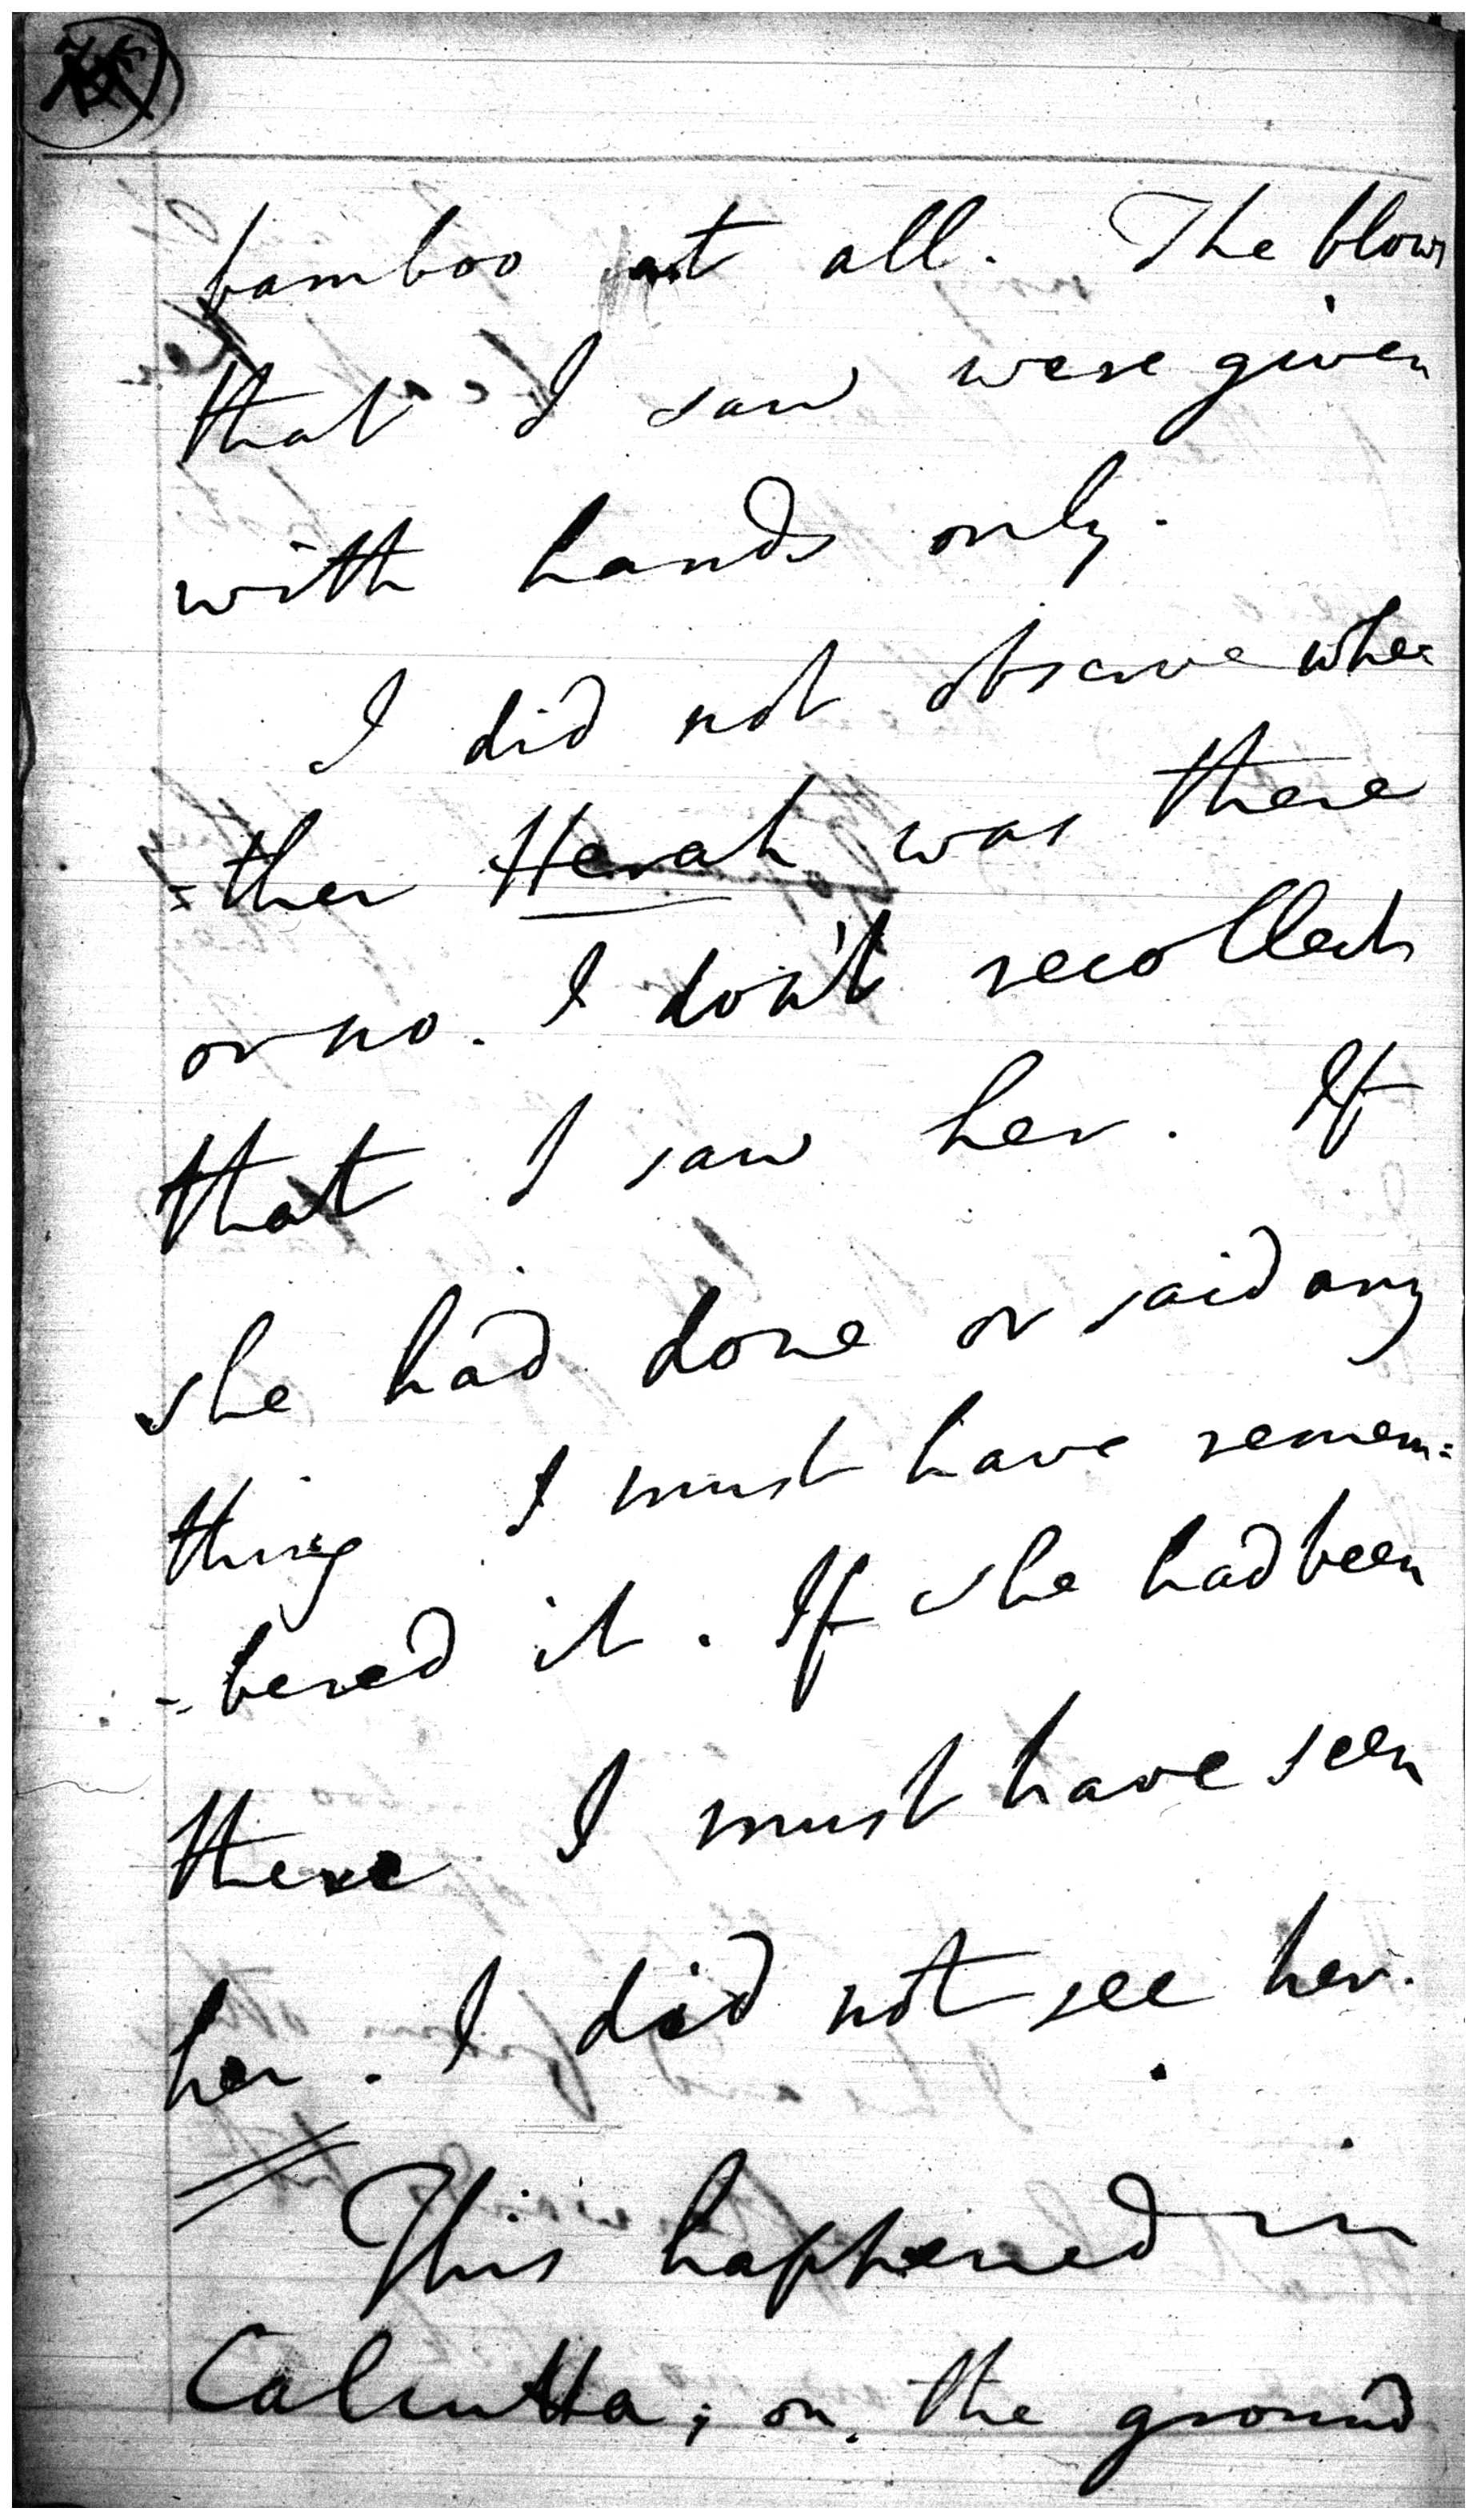 bamboo at all. The blows
that I saw were given
with hands only.
I did not observe whe=
=ther Herah was there
or no. I don't recollect
that I saw her. If
she had done or said any
thing I must have remem=
=bered it. If she had been
there I must have seen
her. I did not see her.
This happened in
Calcutta; on the ground